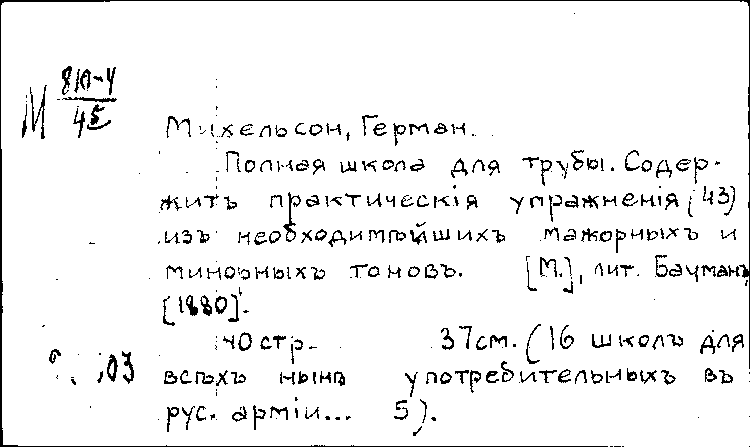 М 810-4
45
Михельсон, Герман.
Полная школа для трубы. Содер-
житъ практическія упражненія (43)
изъ необходимѣйшихъ мажорныхъ и
минорныхъ тоновъ. [М.], лит. Бачманъ,
[1880].
40 стр. 37см. (16 школъ для
всѣхъ нынѣ употребительныхъ въ
рус. арміи... 5).